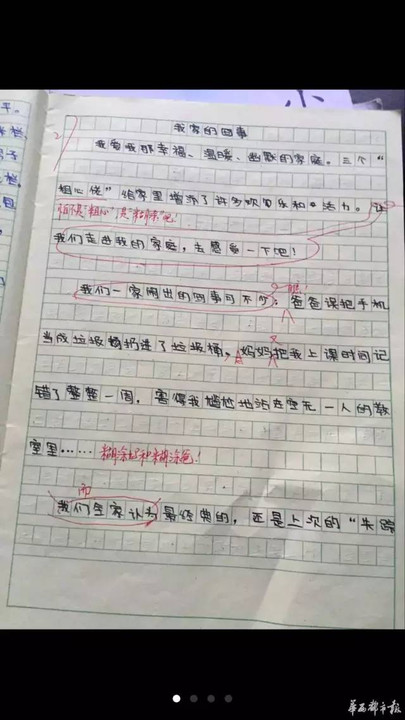 我家的囧事
我有我那幸福、温暖、幽默的家庭。三个“
粗心佬”给家里增添了许多欢声乐和活力。让
我们走进我的家庭，去感受一下吧！
我们一家闹出的囧事可不少：爸爸误把手机
当成垃圾扔进了垃圾桶，妈妈把我上课时间记
错了整整一周，害得我尴尬地站在空无一人的教
室里……
糊涂妈和糊涂爸！
而
我们全家认为最经典的，还是上次的“失踪
华西都市报